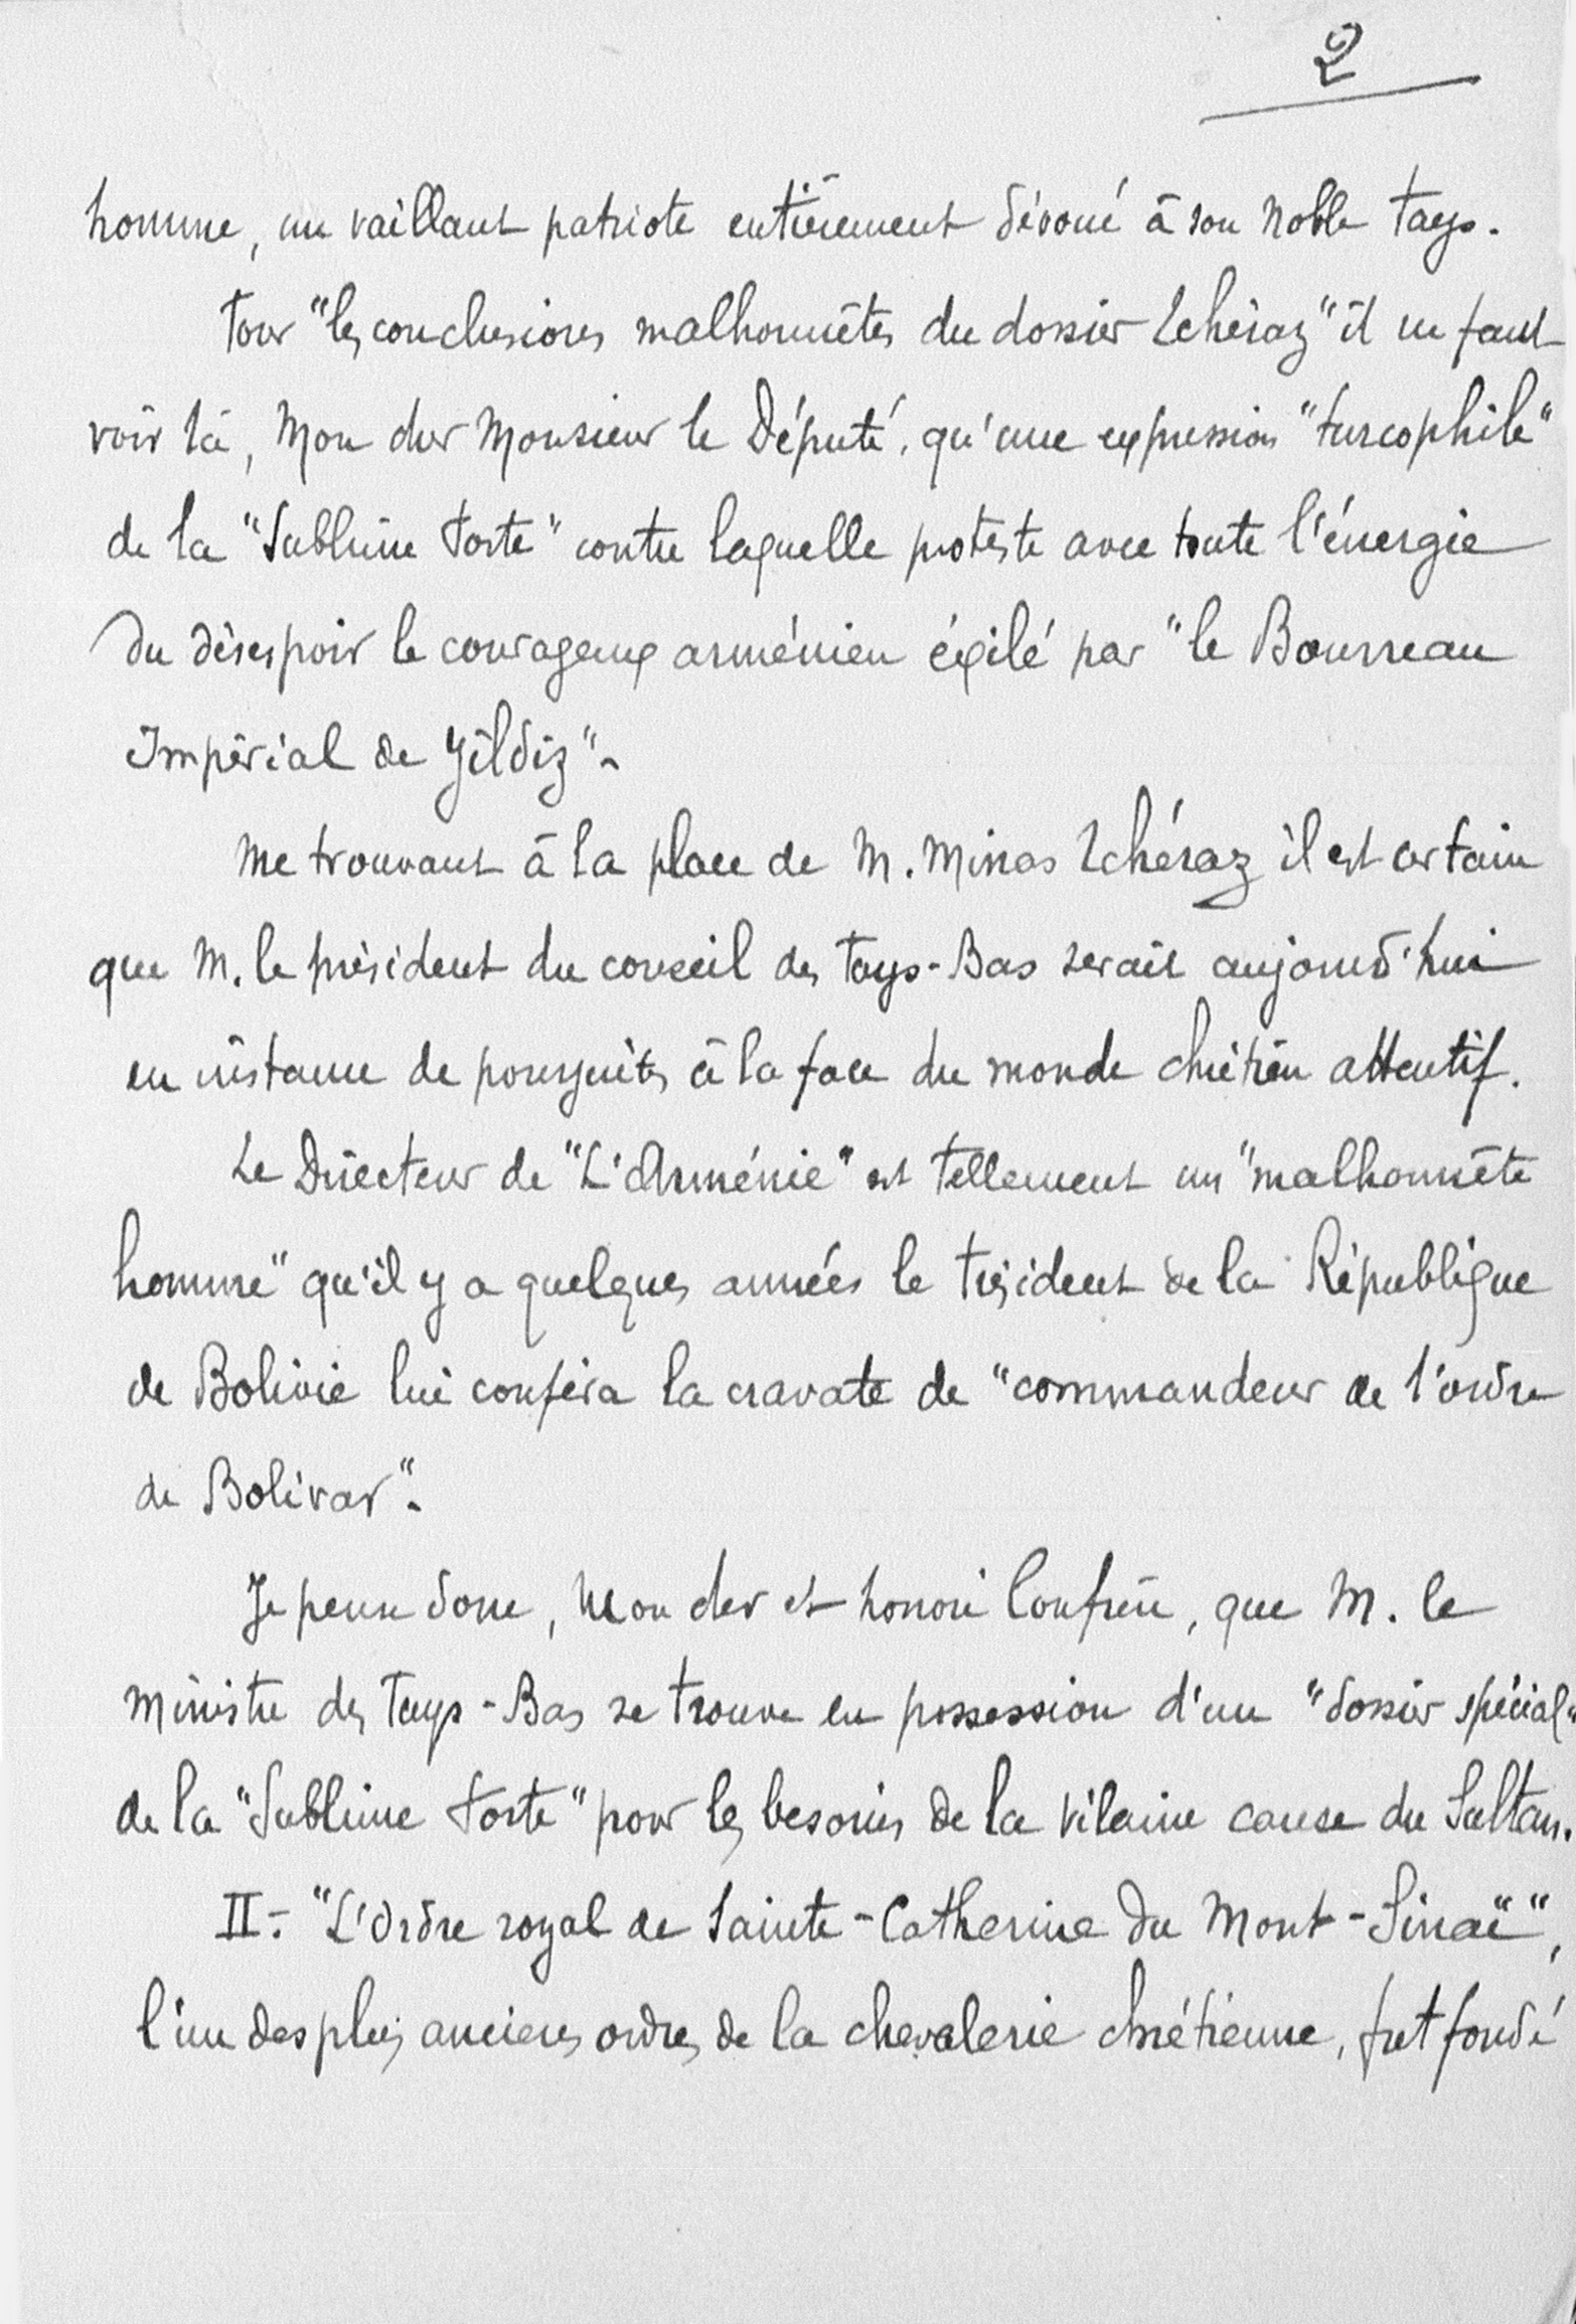 2
homme, un vaillant patriote entièrement dévoué à son noble Pays.
Pour "les conclusions malhonnêtes du dossier Tchéraz" il ne faut
voir là, Mon cher Monsieur le Député, qu'une expression "turcophile"
de la "Sublime Porte" contre laquelle proteste avec toute l'énergie
du désespoir le courageux arménien exilé par "le Bourreau
Impérial de Yildiz".
Me trouvant à la place de M. Minas Tchéraz il est certain
que M. le président du conseil des Pays-Bas serait aujourd'hui
en instance de poursuites à la face du monde chrétien attentif.
Le Directeur de "L'Arménie" est tellement un "malhonnête
homme" qu'il y a quelques années le Président de la République
de Bolivie lui conféra la cravate de "commandeur de l'ordre
de Bolivar".
Je pense donc, Mon cher et honoré Confrère, que M. le
Ministre des Pays-Bas se trouve en possession d'un "dossier spécial"
de la "Sublime Porte" pour les besoins de la vilaine cause du Sultan.
II.- "L'Ordre royal de Sainte-Catherine du Mont-Sinaï",
l'un des plus anciens ordres de la chevalerie chrétienne, fut fondé